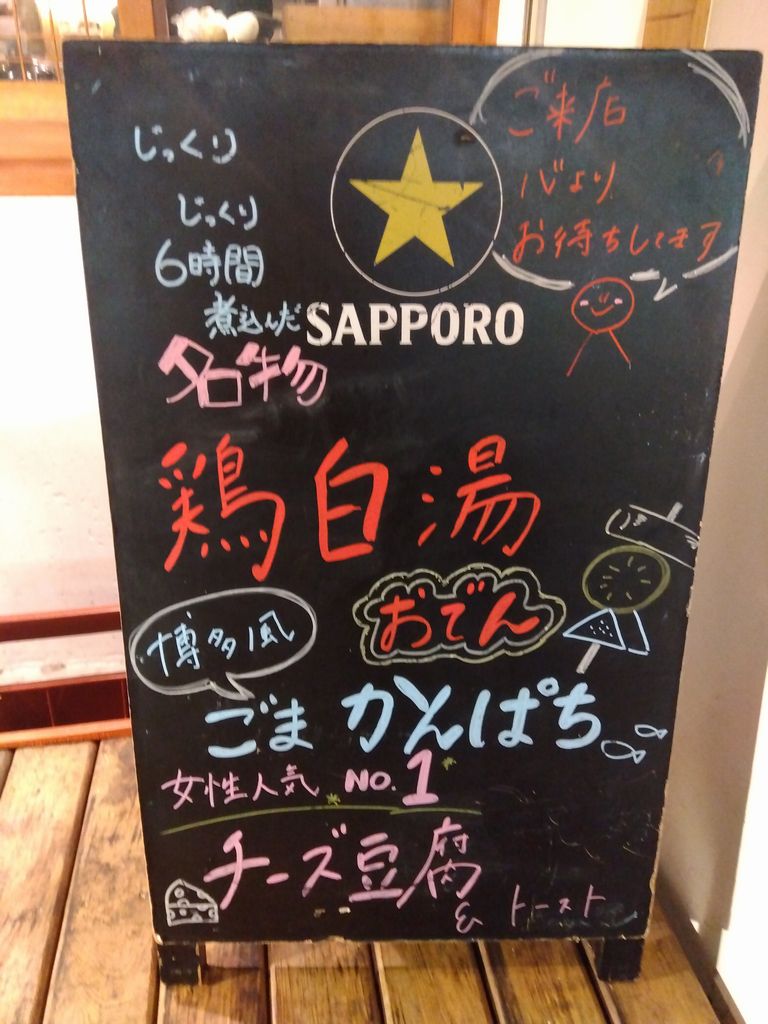 じっくり
じっくり
6時間
煮込んだ
SAPPORO
ご来店
心より
お待ちしてます
名物
鶏白湯
おでん
博多風
ごまかんぱち
女性人気 NO.1
チーズ豆腐
& トースト